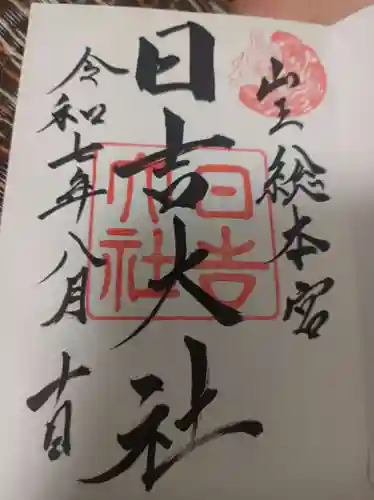 山王総本宮
日吉大社
令和七年八月十日
日吉
大社